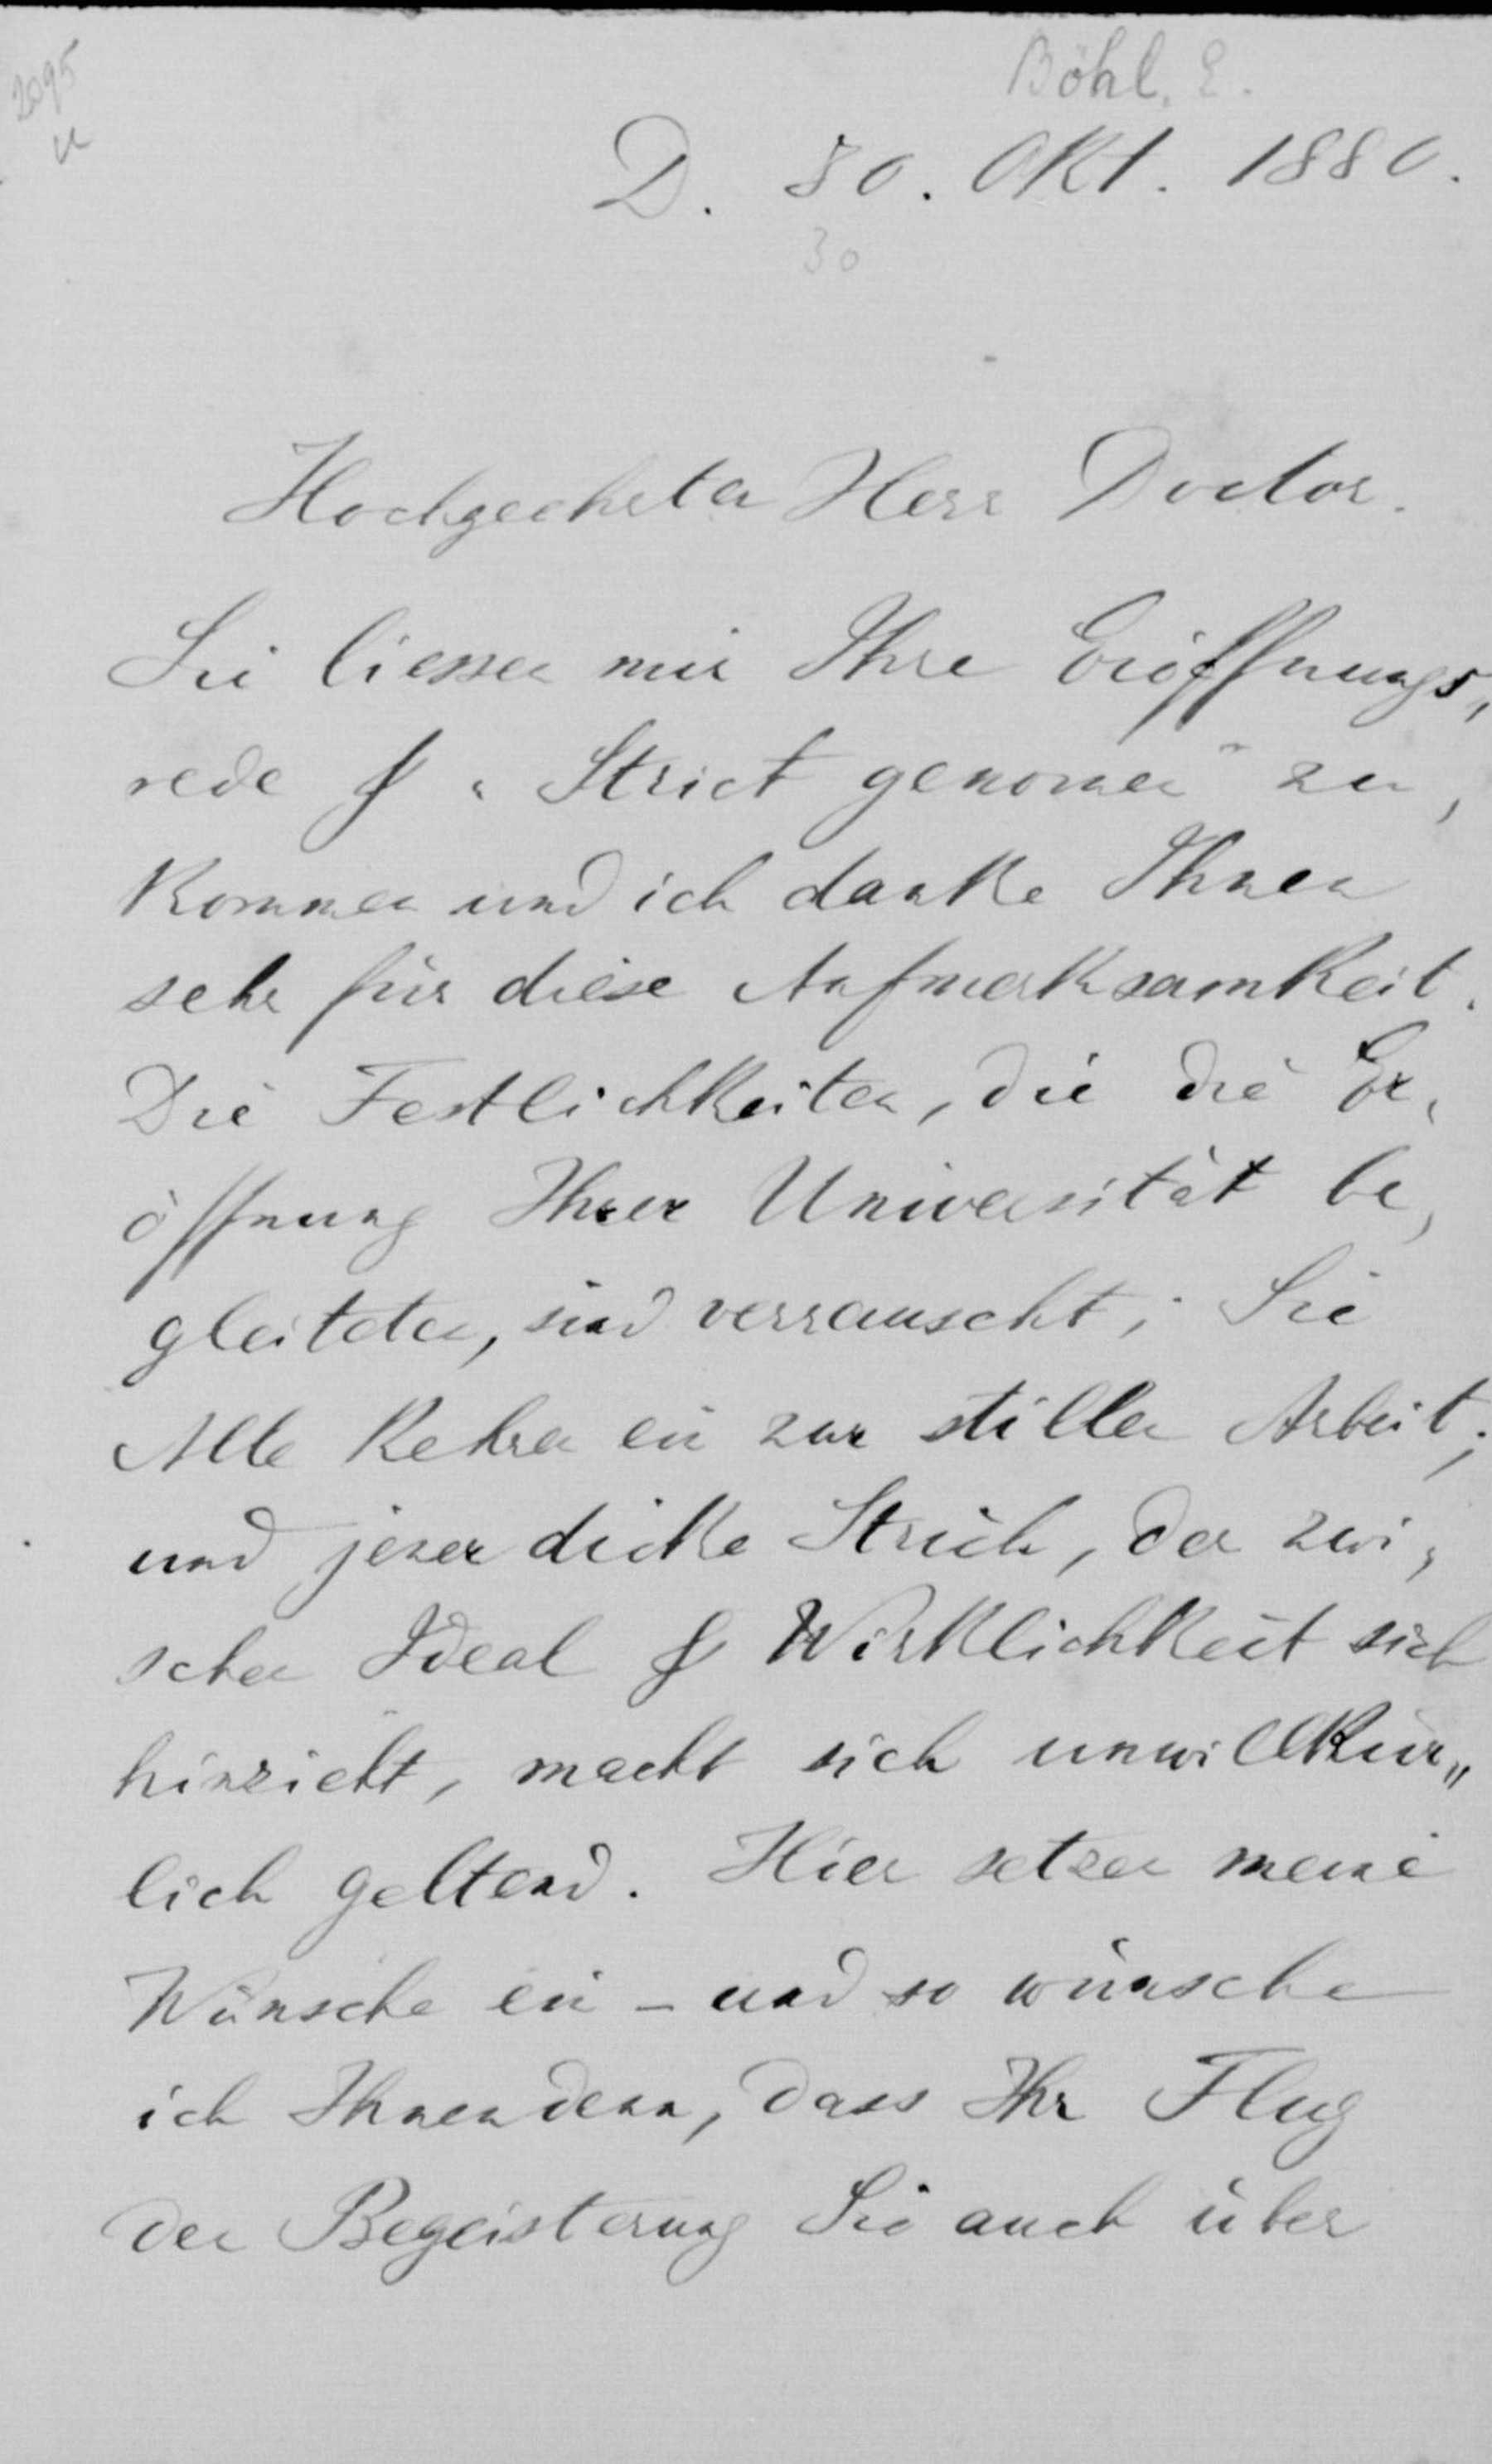 2095
Böhl, E.
D. 30. Okt. 1880.
30
Hochgeehrter Herr Doctor.
Sie liessen mir Ihre Eröffnungs„
rede & „Strict genomen" zu,
kommen und ich danke Ihnen
sehr für diese Aufmerksamkeit.
Die Festlichkeiten, die die Er,
öffnung Ihrer Universität be,
gleiteten, sind verrauscht; Sie
Alle kehren ein zur stillen Arbeit;
und jener dicke Strich, der zwi,
schen Ideal & Wirklichkeit sich
hinzieht, macht sich unwillkür„
lich geltend. Hier setzen meine
Wünsche ein – und so wünsche
ich Ihnen denn, dass Ihr Flug
der Begeisterung Sie auch über